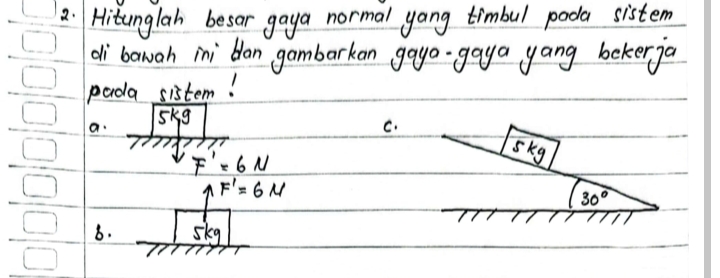 2. Hitunglah besar gaya normal yang timbul pada sistem
di bawah ini dan gambarkan gaya-gaya yang bekerja
pada sistem !
a. 5kg
F' = 6 N
c. 5 kg
30°
F' = 6 N
b. 5kg